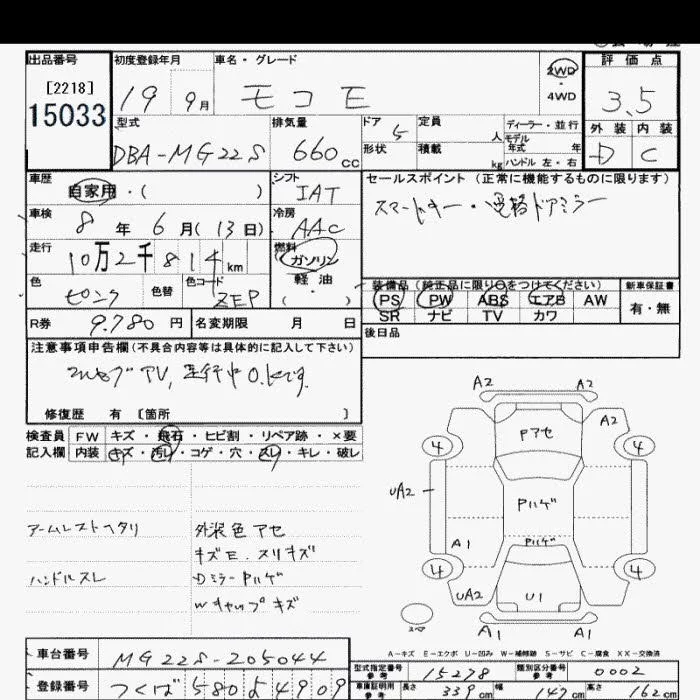 出品番号
[2218]
15033
初度登録年月
19 9月
車名・グレード
モコ E
2WD
・
4WD
評価点
3.5
外装 内装
D C
型式
DBA-MG22S
排気量
660cc
ドア 5
形状
定員 人
積載 kg
ディーラー・並行
モデル年式 年
ハンドル 左・右
車歴
自家用・( )
シフト
IAT
セールスポイント (正常に機能するものに限ります)
スマートキー・電格ドアミラー
車検
8年 6月(13日)
冷房
AAC
走行
10万2千814km
燃料
ガソリン
軽油
( )
色
ピンク
色替
色コード
ZEP
装備品 (純正品に限り○をつけてください)
PS PW ABS エアB AW
SR ナビ TV カワ
新車保証書
有・無
R券 9.780円
名変期限 月 日
後日品
注意事項申告欄(不具合内容等は具体的に記入して下さい)
TV,走行中O.Kです.
修復歴 有 [箇所 ]
検査員 FW キズ・飛石・ヒビ割・リペア跡・×要
記入欄 内装 キズ・汚レ・コゲ・穴・スレ・キレ・破レ
アームレストヘタリ
ハンドルスレ
外装色アセ
キズE.スリキズ
Dミラー Pハゲ
Wキャップキズ
A2 A2
Pアセ
A2
4 4
UA2
Pハゲ
A1
Pハゲ
4 4
UA2
U1
スペア
A1 A1
A-キズ E-エクボ U-凹み W-補修跡 S-サビ C-腐食 XX-交換済
車台番号 MG22S-205044
登録番号 つくば 580 よ 4909
型式指定番号 参考 15278
類別区分番号 参考 0002
車庫証明用 参考 長さ 339cm 幅 147cm 高さ 162cm